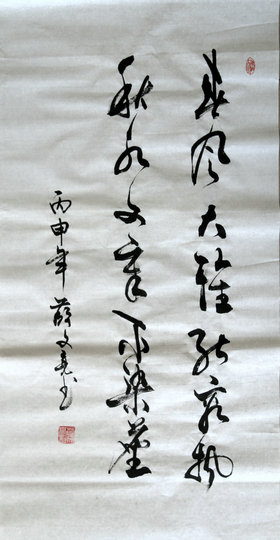 春风大雅能容物
秋水文章不染塵
丙申年 薛文亮书